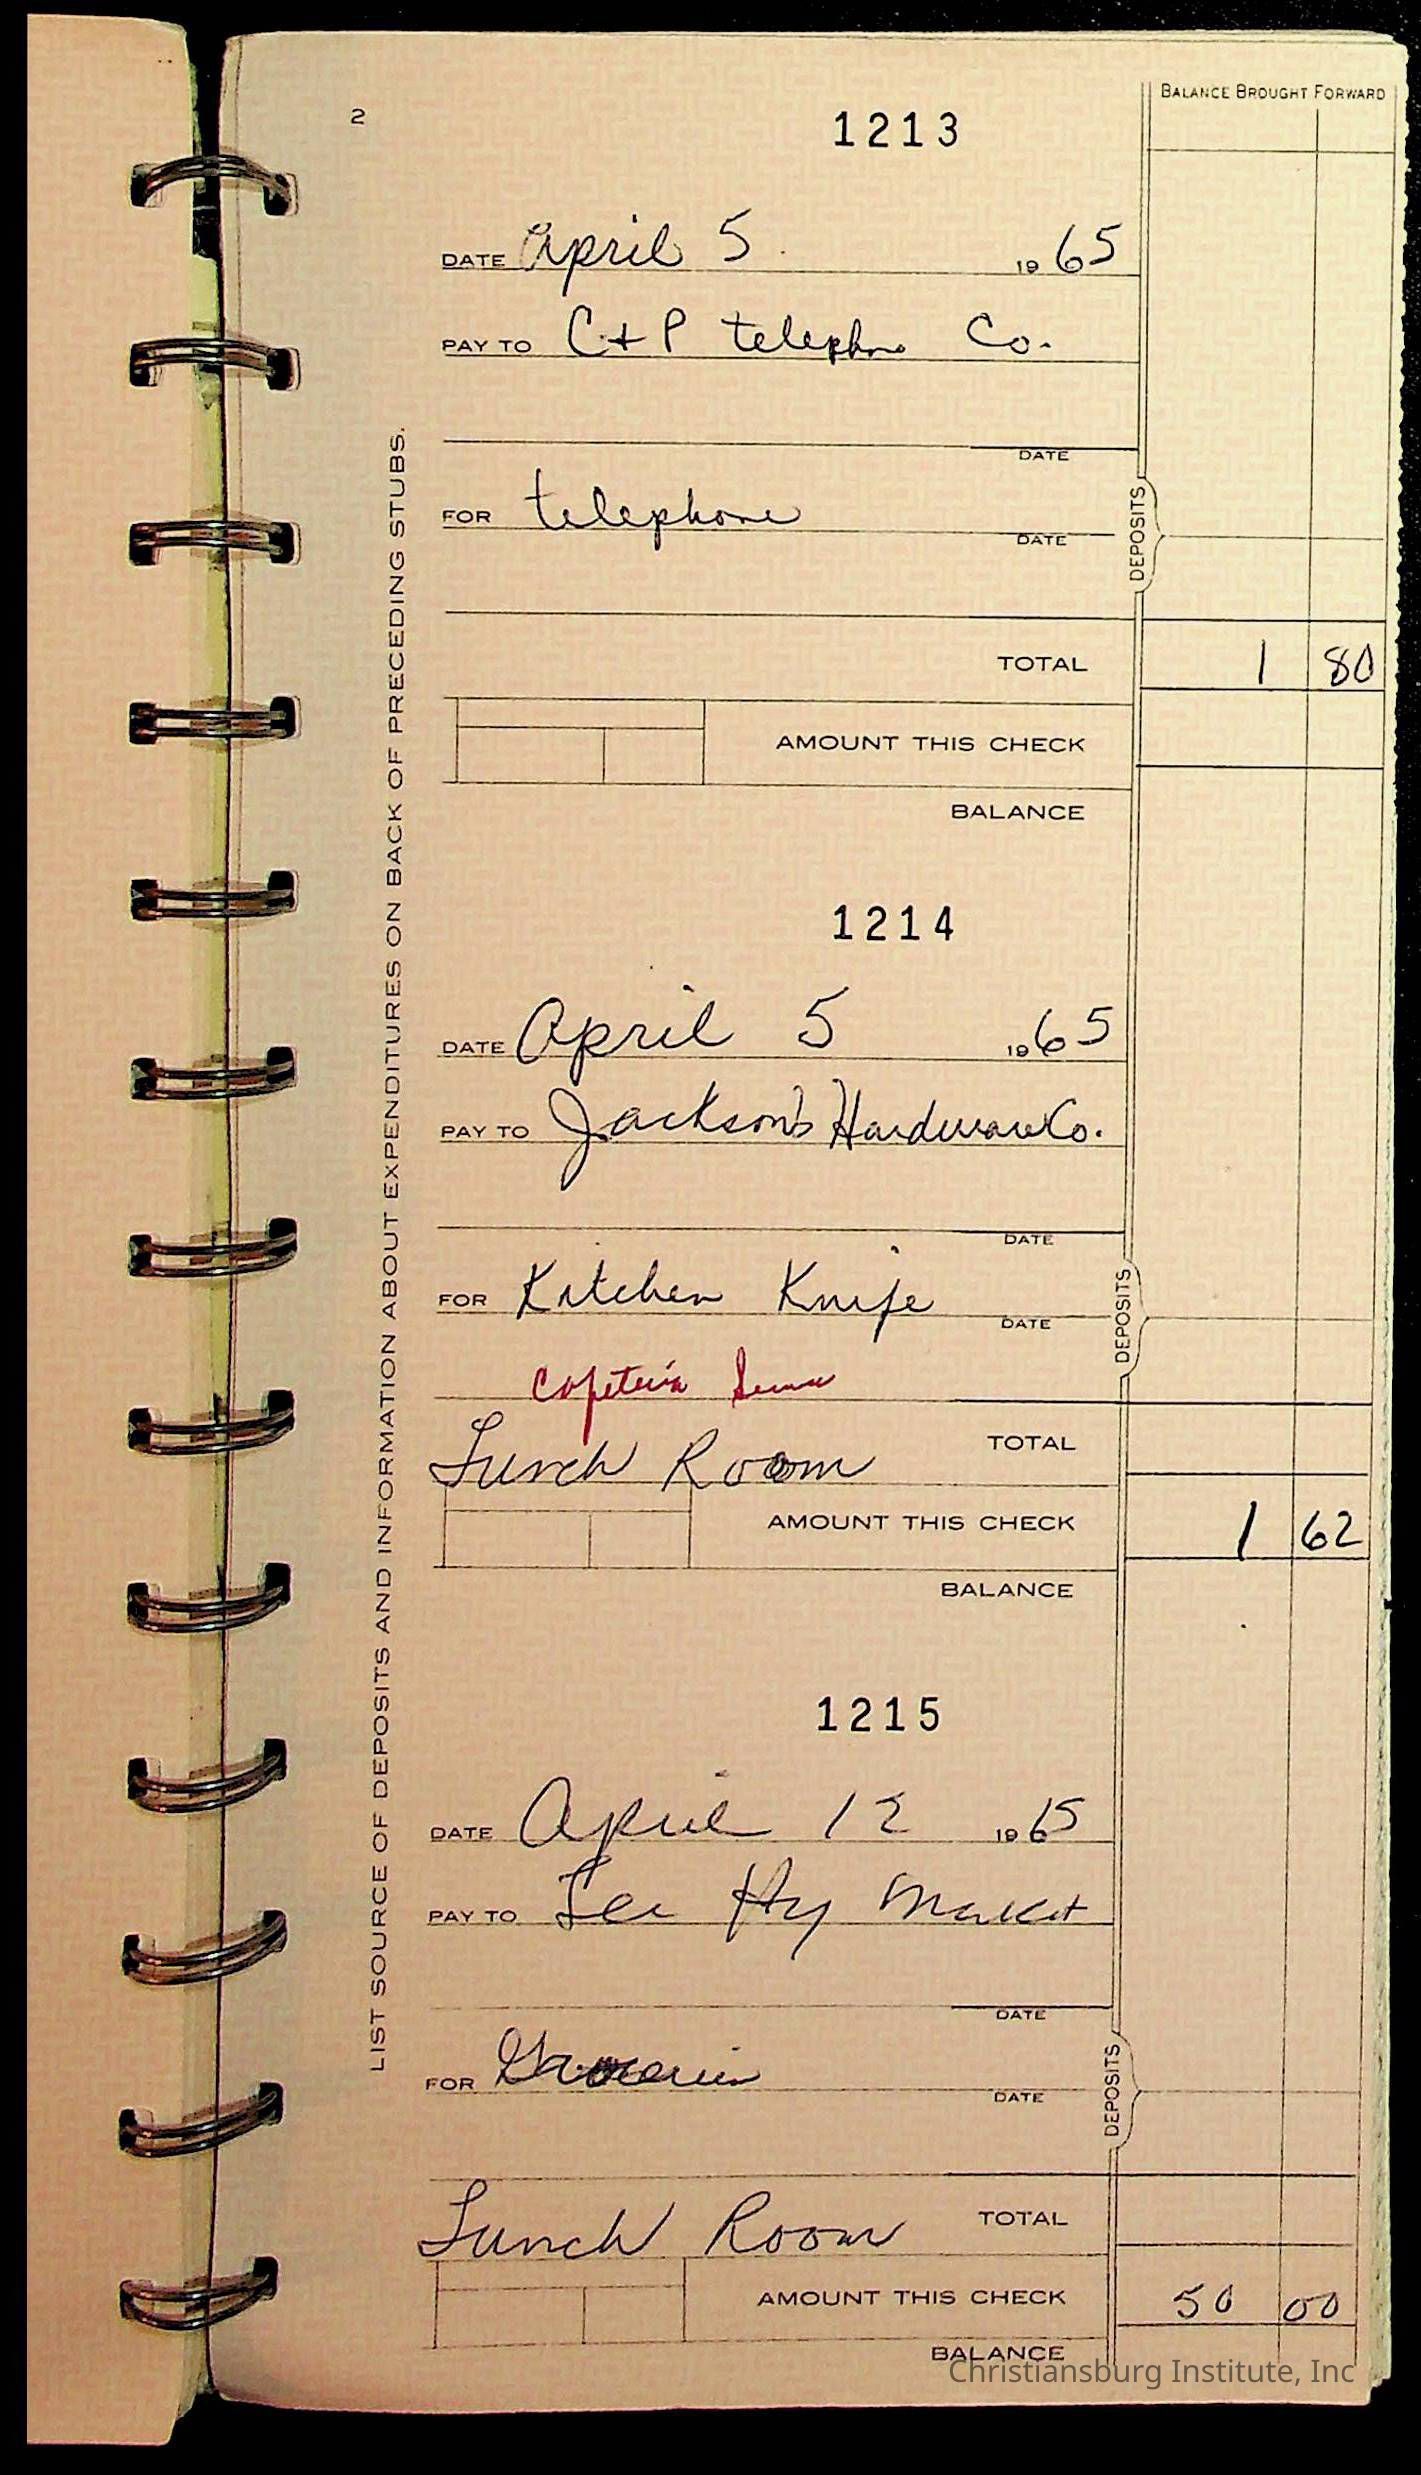 2
1213
BALANCE BROUGHT FORWARD
DATE April 5 1965
PAY TO C + P telephone Co.
DATE
FOR telephone
DATE
DEPOSITS
TOTAL 1 80
AMOUNT THIS CHECK
BALANCE
LIST SOURCE OF DEPOSITS AND INFORMATION ABOUT EXPENDITURES ON BACK OF PRECEDING STUBS.
1214
DATE April 5 1965
PAY TO Jackson's Hardware Co.
DATE
FOR Kitchen Knife
DATE
DEPOSITS
Cafeteria
Lunch Room TOTAL
AMOUNT THIS CHECK 1 62
BALANCE
1215
DATE April 12 1965
PAY TO Lee Hy Market
DATE
FOR Groceries
DATE
DEPOSITS
Lunch Room TOTAL
AMOUNT THIS CHECK 50 00
BALANCE
Christiansburg Institute, Inc